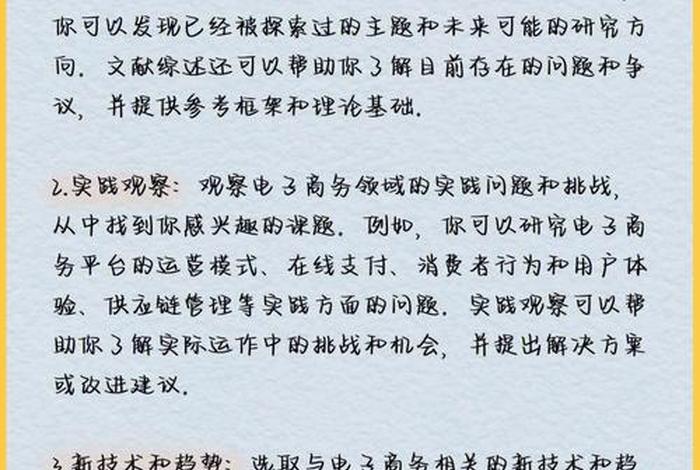 你可以发现已经被探索过的主题和未来可能的研究方
向. 文献综述还可以帮助你了解目前存在的问题和争
议, 并提供参考框架和理论基础.
2.实践观察: 观察电子商务领域的实践问题和挑战,
从中找到你感兴趣的课题. 例如, 你可以研究电子商
务平台的运营模式、在线支付、消费者行为和用户体
验、供应链管理等实践方面的问题. 实践观察可以帮
助你了解实际运作中的挑战和机会, 并提出解决方案
或改进建议.
3.新技术和趋势: 选取与电子商务相关的新技术和趋